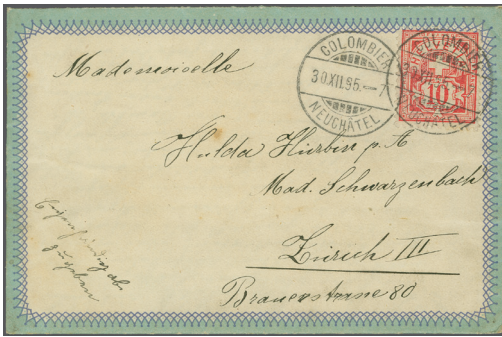 Mademoiselle
COLOMBIER
30.XII.95.–7
NEUCHÂTEL
COLOMBIER
NEUCHÂTEL
10
Hulda Hierbin p. A
Mad. Schwarzenbach
Zürich III
Brauerstrasse 80